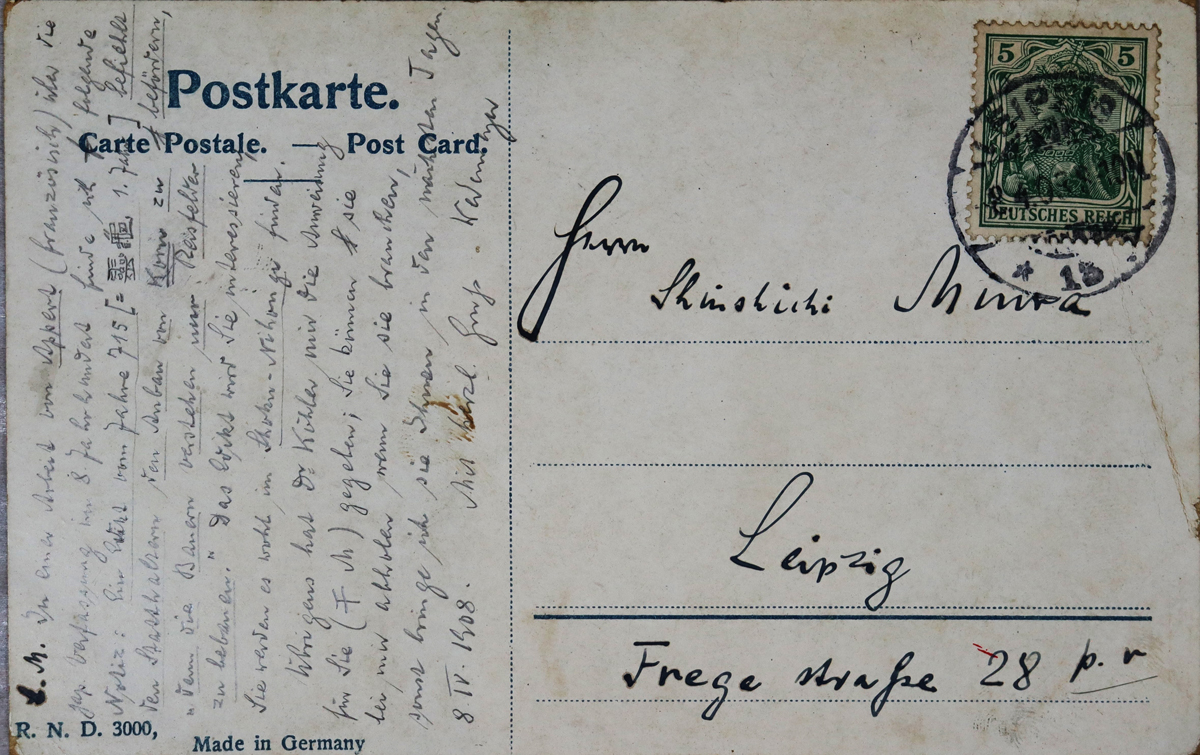 Postkarte.
Carte Postale. — Post Card.
L. M. In einer Arbeit von Appert (französisch) über die
jap. Verfassung im 8 Jahrhundert finde ich folgende
Notiz: Ein Edikt vom Jahre 715 [= 靈龜 1. Jahr] befiehlt
den Statthaltern, den Anbau von Korn zu befördern,
„denn die Bauern verstehen nur Reisfelder
zu bebauen." Das Edikt wird Sie interessieren,
Sie werden es wohl im Shoku-Nihongi finden.
Übrigens hat Dr Köhler mir die Anweisung
für Sie (F M) gegeben; Sie können sie
bei mir abholen, wenn Sie sie brauchen,
sonst bringe ich sie Ihnen in den nächsten Tagen.
8. IV. 1908. Mit herzl. Gruß.
R. N. D. 3000,
Made in Germany
5 5
DEUTSCHES REICH
LEIPZIG
* 13
Herrn
Shinshichi Miura
Leipzig
Frege straße 28 p. r